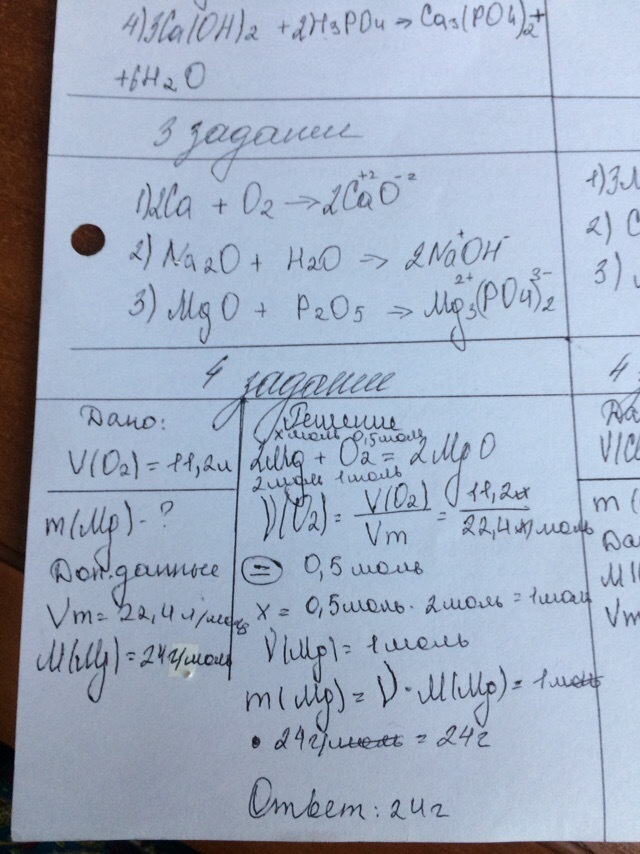 4) 3Ca(OH)2 + 2H3PO4 → Ca3(PO4)2 +
+ 6H2O
3 задание
1) 2Ca + O2 → 2Ca⁺²O⁻²
2) Na2O + H2O → 2Na⁺OH⁻
3) MgO + P2O5 → Mg3²⁺(PO4)2³⁻
4 задание
Дано:
V(O2) = 11,2л
m(Mg) - ?
Доп. данные
Vm = 22,4 л/моль
M(Mg) = 24г/моль
Решение
x моль 0,5 моль
2Mg + O2 = 2MgO
2 моль 1 моль
ν(O2) = V(O2)/Vm = 11,2л/22,4 л/моль
= 0,5 моль
x = 0,5 моль · 2 моль = 1 моль
ν(Mg) = 1 моль
m(Mg) = ν · M(Mg) = 1 моль
· 24г/моль = 24г
Ответ: 24г
1) 3
2) C
3)
4
Да
V(C
m(
Да
M(
Vm